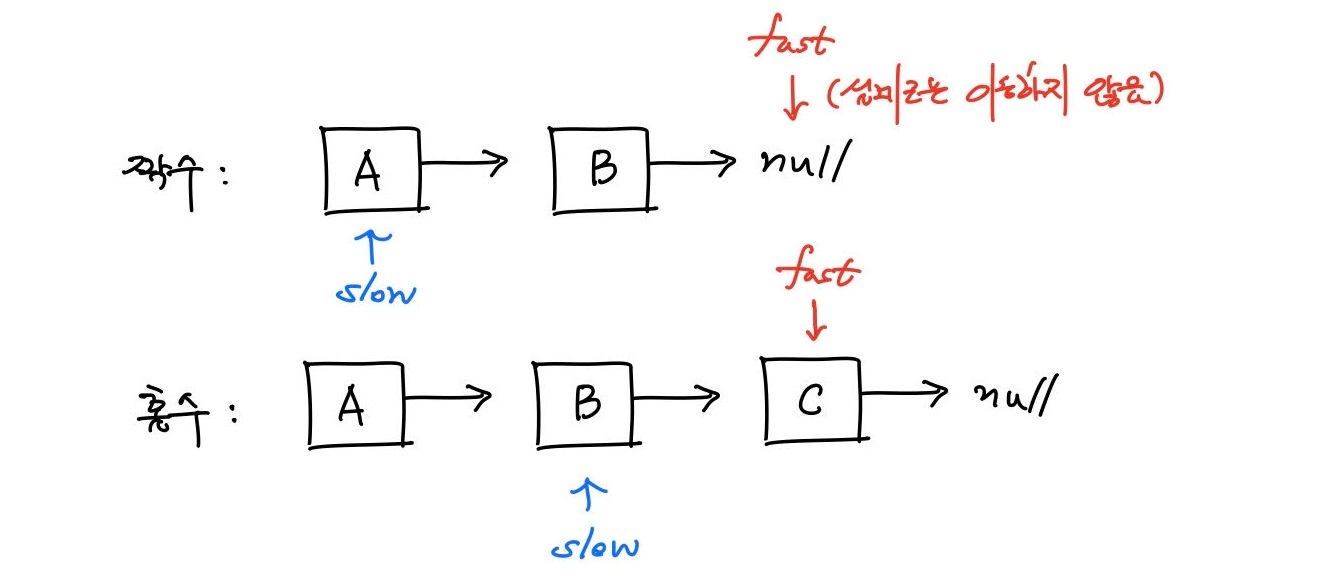 fast
↓ (실제로는 이동하지 않음)
짝수 : A → B → null
↑
slow
fast
↓
홀수 : A → B → C → null
↑
slow